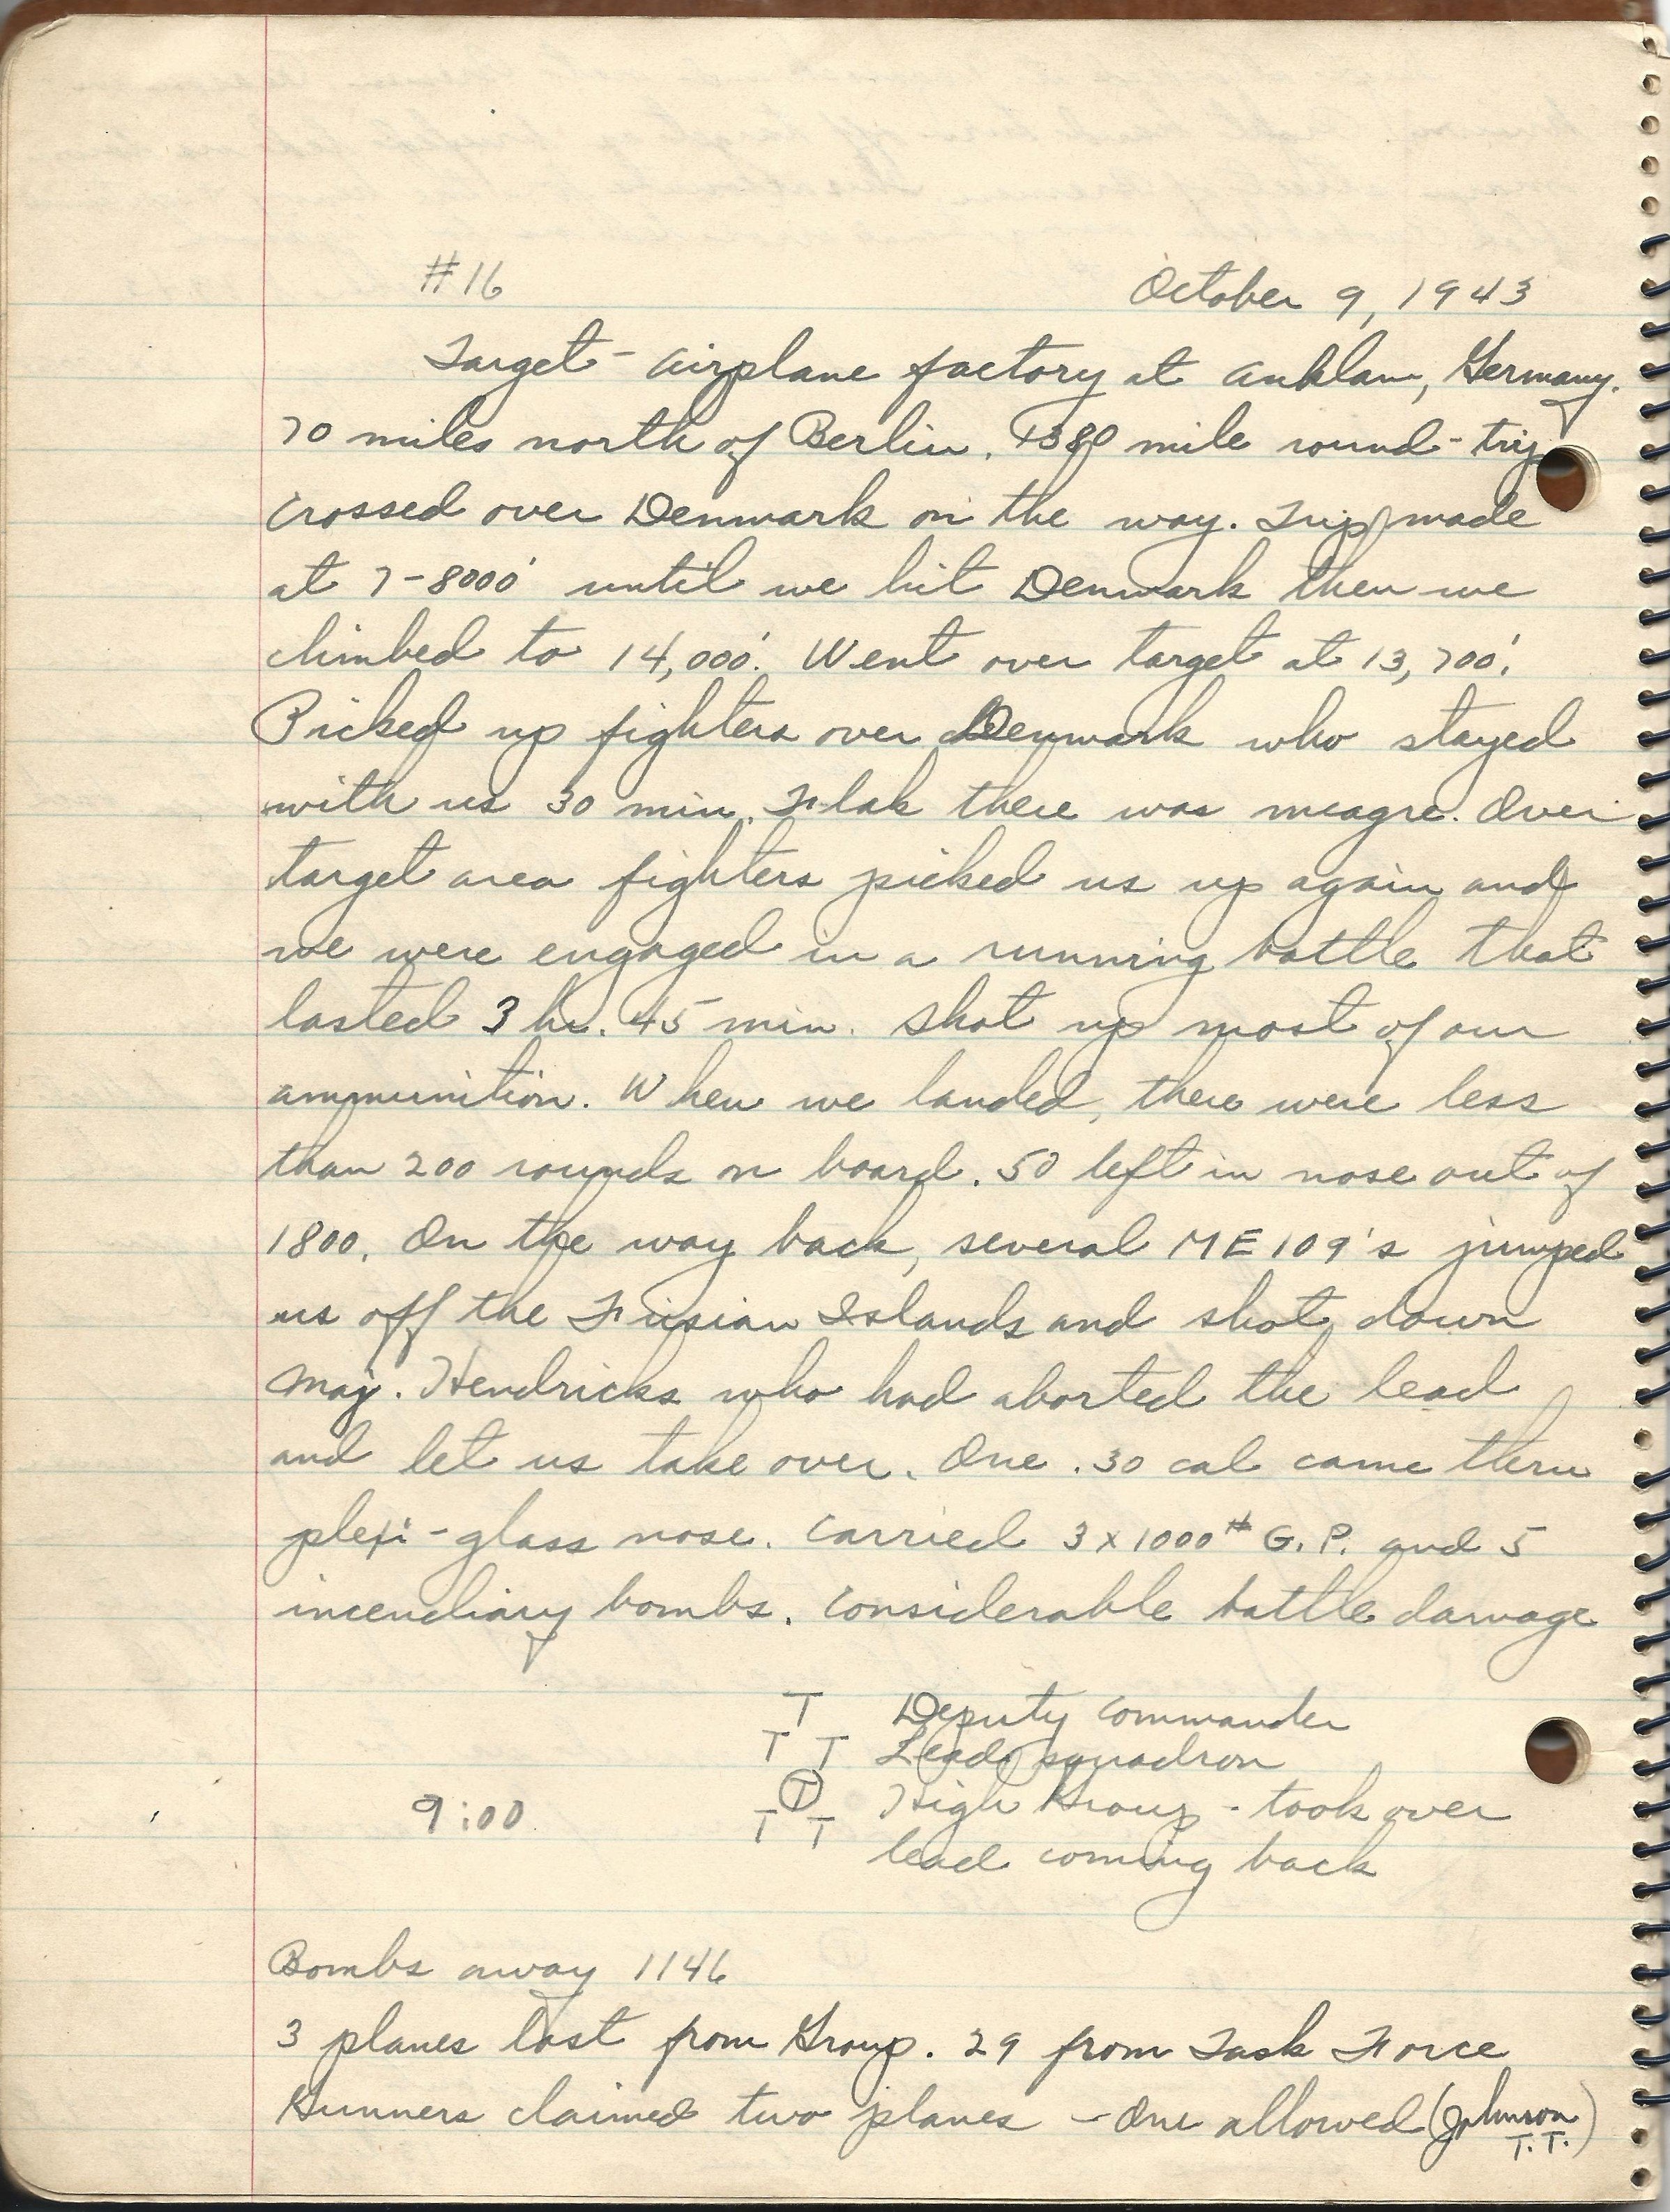 #16 October 9, 1943
Target - airplane factory at Anklam, Germany.
70 miles north of Berlin. 1380 mile round-trip
crossed over Denmark on the way. Trip made
at 7-8000' until we hit Denmark then we
climbed to 14,000'. Went over target at 13,700'.
Picked up fighters over Denmark who stayed
with us 30 min. Flak there was meagre. Over
target area fighters picked us up again and
we were engaged in a running battle that
lasted 3 hr. 45 min. Shot up most of our
ammunition. When we landed, there were less
than 200 rounds on board. 50 left in nose out of
1800. On the way back, several ME 109's jumped
us off the Frisian Islands and shot down
Maj. Hendricks who had aborted the lead
and let us take over. One .30 cal came thru
plexi-glass nose. Carried 3 x 1000# G.P. and 5
incendiary bombs. Considerable battle damage
T Deputy Commander
T T Lead squadron
9:00 T High Group - took over
T T
lead coming back
Bombs away 1146
3 planes lost from Group. 29 from Task Force
Gunners claimed two planes - One allowed (Johnson
T.T.)